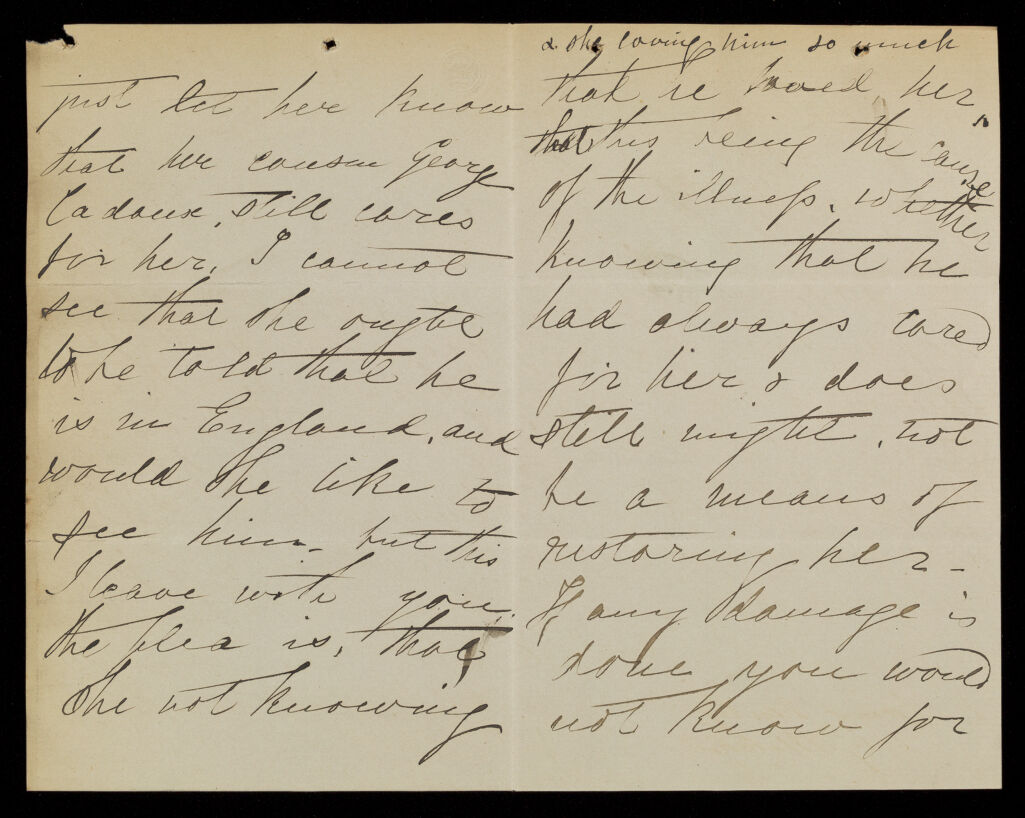 just let her know
that her cousin George
Cadoux, still cares
for her, I cannot
see that she ought
to be told that he
is in England, and
would she like to
see him - but this
I leave with you,
the plea is, that
she not knowing
& she loving him so much
that he loved her,
this being the cause
of the illness, whether
knowing that he
had always cared
for her & does
still might, not
be a means of
restoring her -
If any damage is
done you would
not know for